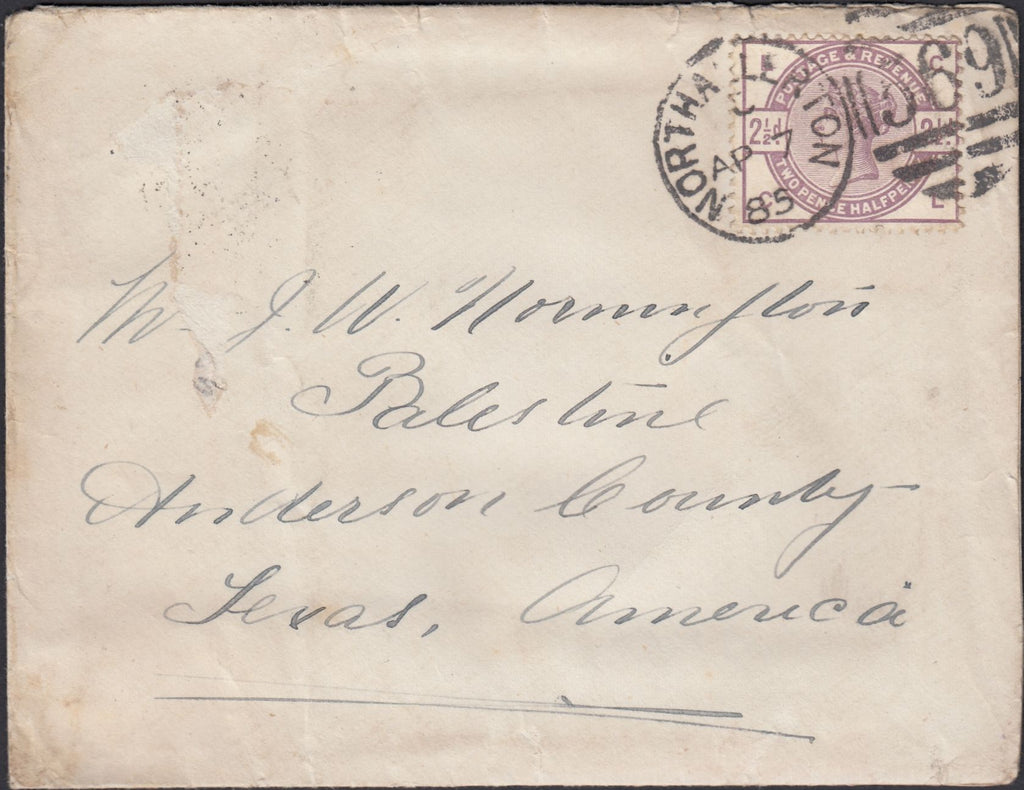 NORTHAMPTON
C
AP 7
85
569
POSTAGE & REVENUE
2½d. 2½d.
TWO PENCE HALFPENNY
L
Mr J. W. Normington
Palestine
Anderson County
Texas, America